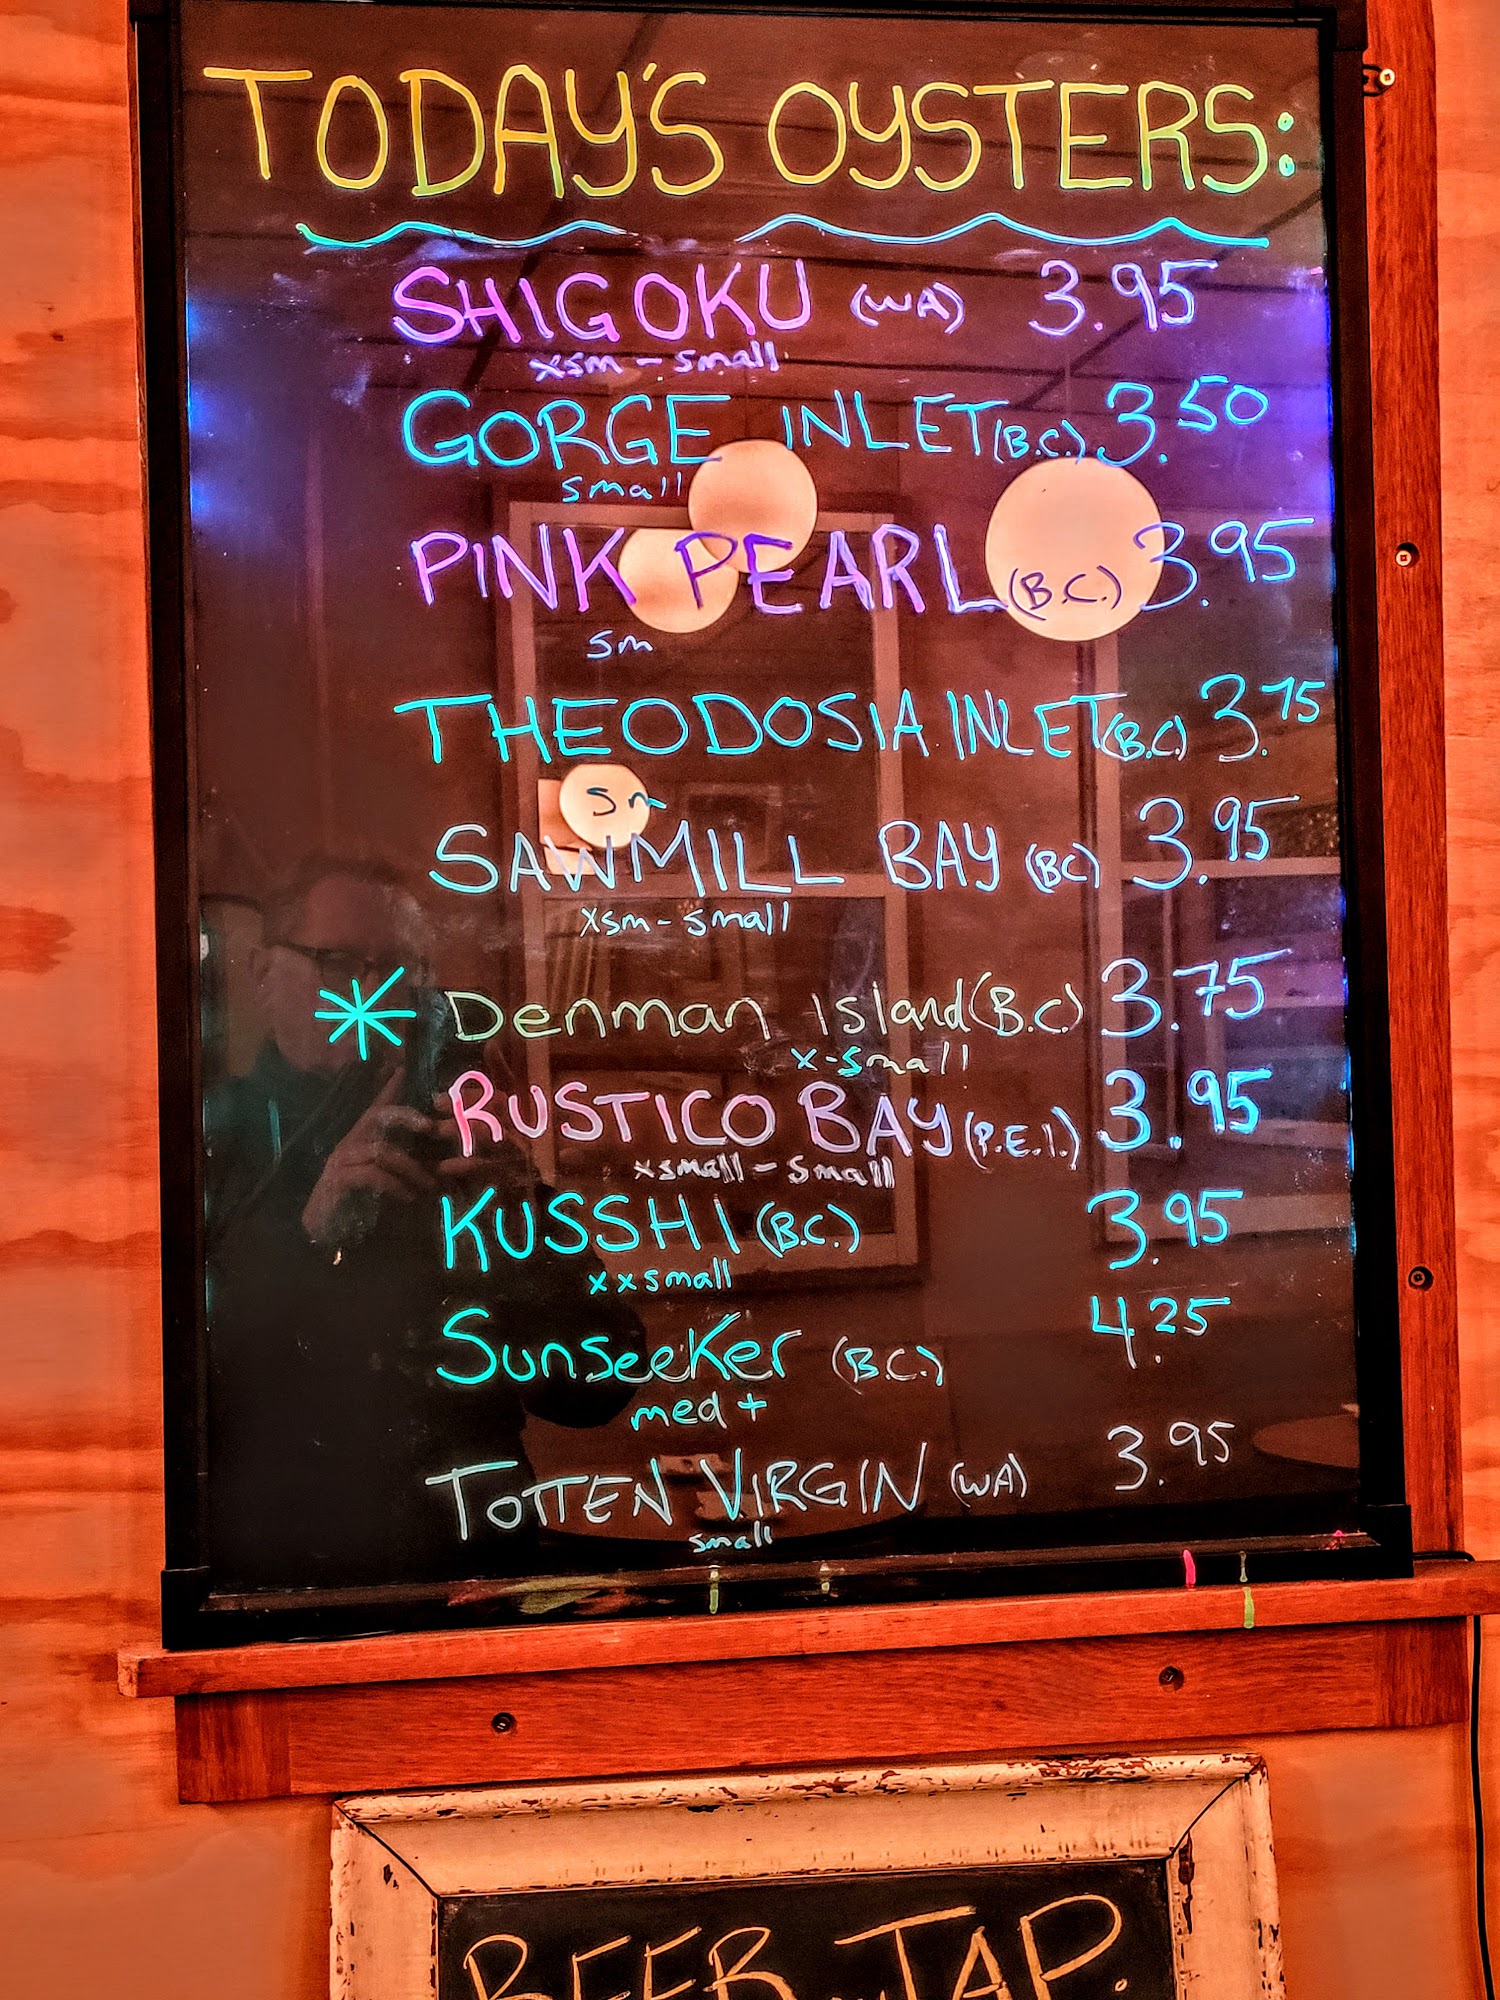 TODAY'S OYSTERS:
SHIGOKU (WA) 3.95
xsm - small
GORGE INLET (B.C.) 3.50
small
PINK PEARL (B.C.) 3.95
sm
THEODOSIA INLET (B.C.) 3.75
sm
SAWMILL BAY (BC) 3.95
xsm - small
* Denman Island (B.C.) 3.75
x-small
RUSTICO BAY (P.E.I.) 3.95
xsmall - small
KUSSHI (B.C.) 3.95
xxsmall
SunseeKer (B.C.) 4.25
med +
TOTTEN VIRGIN (WA) 3.95
small
BEER on TAP.